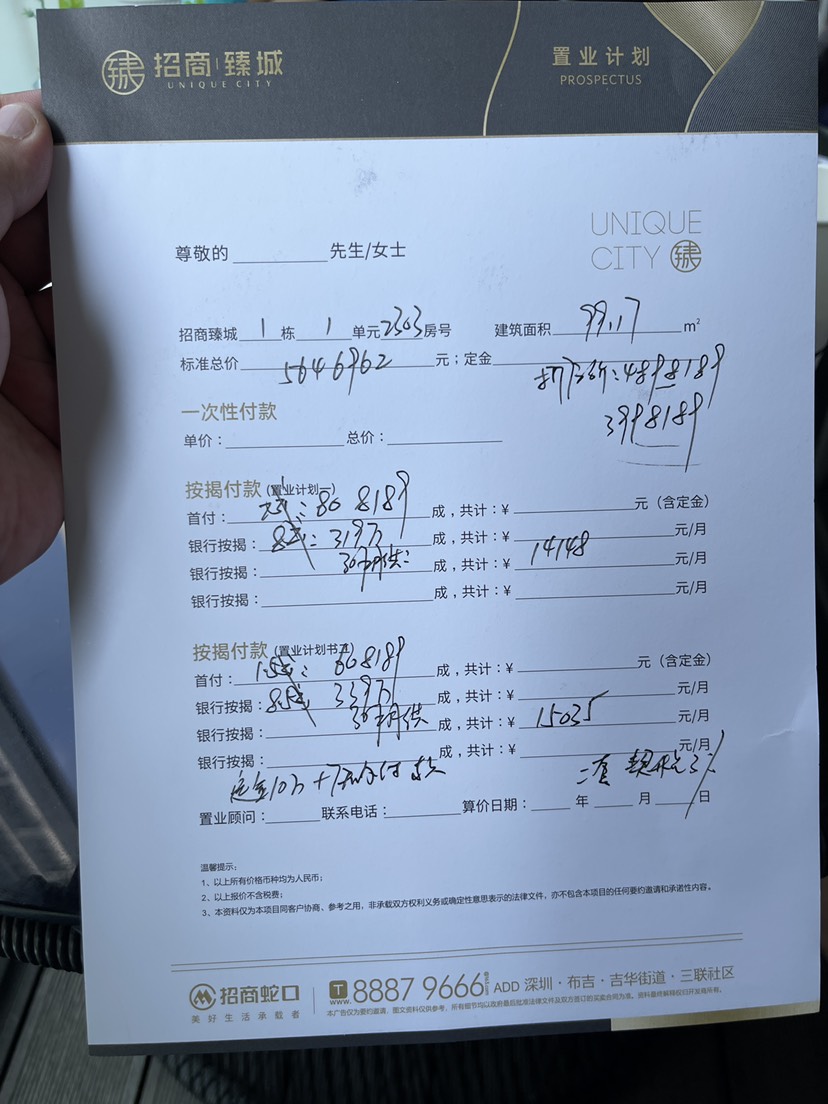 招商 臻城
UNIQUE CITY
置业计划
PROSPECTUS
UNIQUE
CITY 臻
尊敬的 先生/女士
招商臻城 1 栋 1 单元 2303 房号 建筑面积 99.17 m²
标准总价 5646962 元；定金
折后价：4898189
3998189
一次性付款
单价： 总价：
按揭付款（置业计划一）
首付： 808189 成，共计：¥ 元（含定金）
银行按揭：8成：319万 成，共计：¥ 元/月
银行按揭：30年月供： 成，共计：¥ 14148 元/月
银行按揭： 成，共计：¥ 元/月
按揭付款（置业计划书二）
首付：1.5成：608189 成，共计：¥ 元（含定金）
银行按揭：8.5成 339万 成，共计：¥ 元/月
银行按揭：30年月供 成，共计：¥ 15035 元/月
银行按揭： 成，共计：¥ 元/月
定金10万+ 付款 二套 契税3%
置业顾问： 联系电话： 算价日期： 年 月 日
温馨提示：
1、以上所有价格币种均为人民币；
2、以上报价不含税费；
3、本资料仅为本项目同客户协商、参考之用，非承载双方权利义务或确定性意思表示的法律文件，亦不包含本项目的任何要约邀请和承诺性内容。
招商蛇口
美好生活承载者
www. 8887 9666 ADD 深圳·布吉·吉华街道·三联社区
本广告仅为要约邀请，图文资料仅供参考，所有细节均以政府最后批准法律文件及双方签订的买卖合同为准。资料最终解释权归开发商所有。